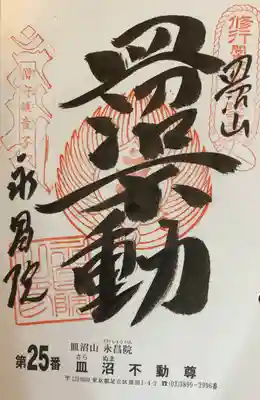 皿沼山
皿沼不動
永昌院
皿沼山 永昌院
第25番 皿沼不動尊
東京都足立区皿沼1-4-2 ☎(03)3899-2996番